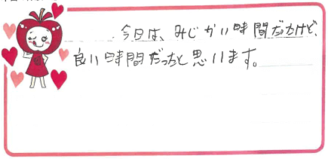 今日は、みじかい時間だカけど、
良い時間だっちと思います。